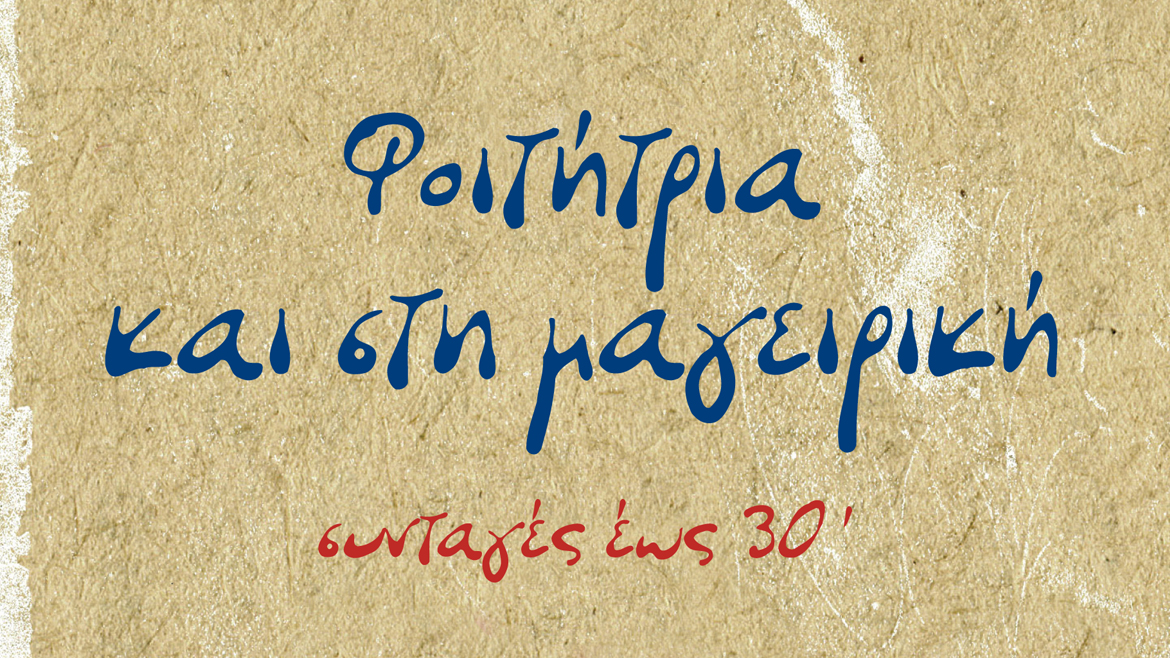 Φοιτήτρια
και στη μαγειρική
συνταγές έως 30'